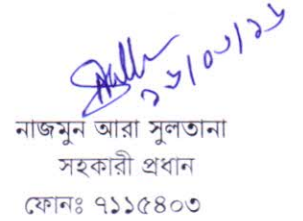 ২৬/০৩/২৬
নাজমুন আরা সুলতানা
সহকারী প্রধান
ফোনঃ ৭১১৫৪০৩